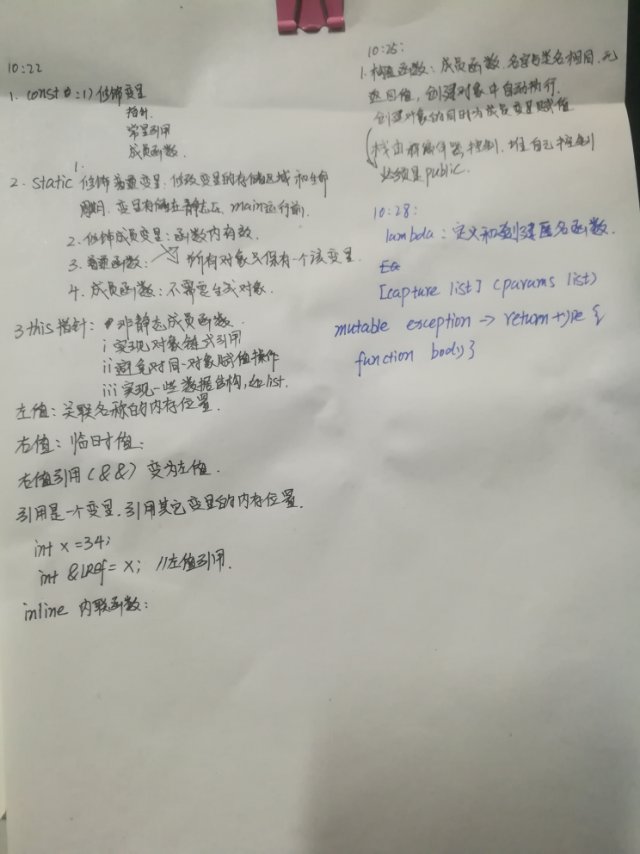 10:22
1. const : 1) 修饰变量
指针.
常量引用
成员函数.
1.
2. static 修饰普通变量: 修改变量的存储区域和生命
周期. 变量存储在静态区, main运行前.
2. 修饰成员变量: 函数内有效.
3. 普通函数: 所有对象只保有一个该变量.
4. 成员函数: 不需要生成对象.
3 this 指针: 非静态成员函数.
i 实现对象链式引用
ii 避免对同一对象赋值操作
iii 实现一些数据结构, 如list.
左值: 关联名称的内存位置.
右值: 临时值.
右值引用 (&&) 变为左值.
引用是一个变量, 引用其它变量的内存位置.
int x = 34;
int &LRef = x; //左值引用.
inline 内联函数:
10:25:
1. 构造函数: 成员函数. 名字与类名相同. 无
返回值, 创建对象中自动执行.
创建对象的同时为成员变量赋值
栈由编译器控制, 堆自己控制
必须是public.
10:28:
lambda: 定义和创建匿名函数.
[capture list] (params list)
mutable exception -> return type {
function body }